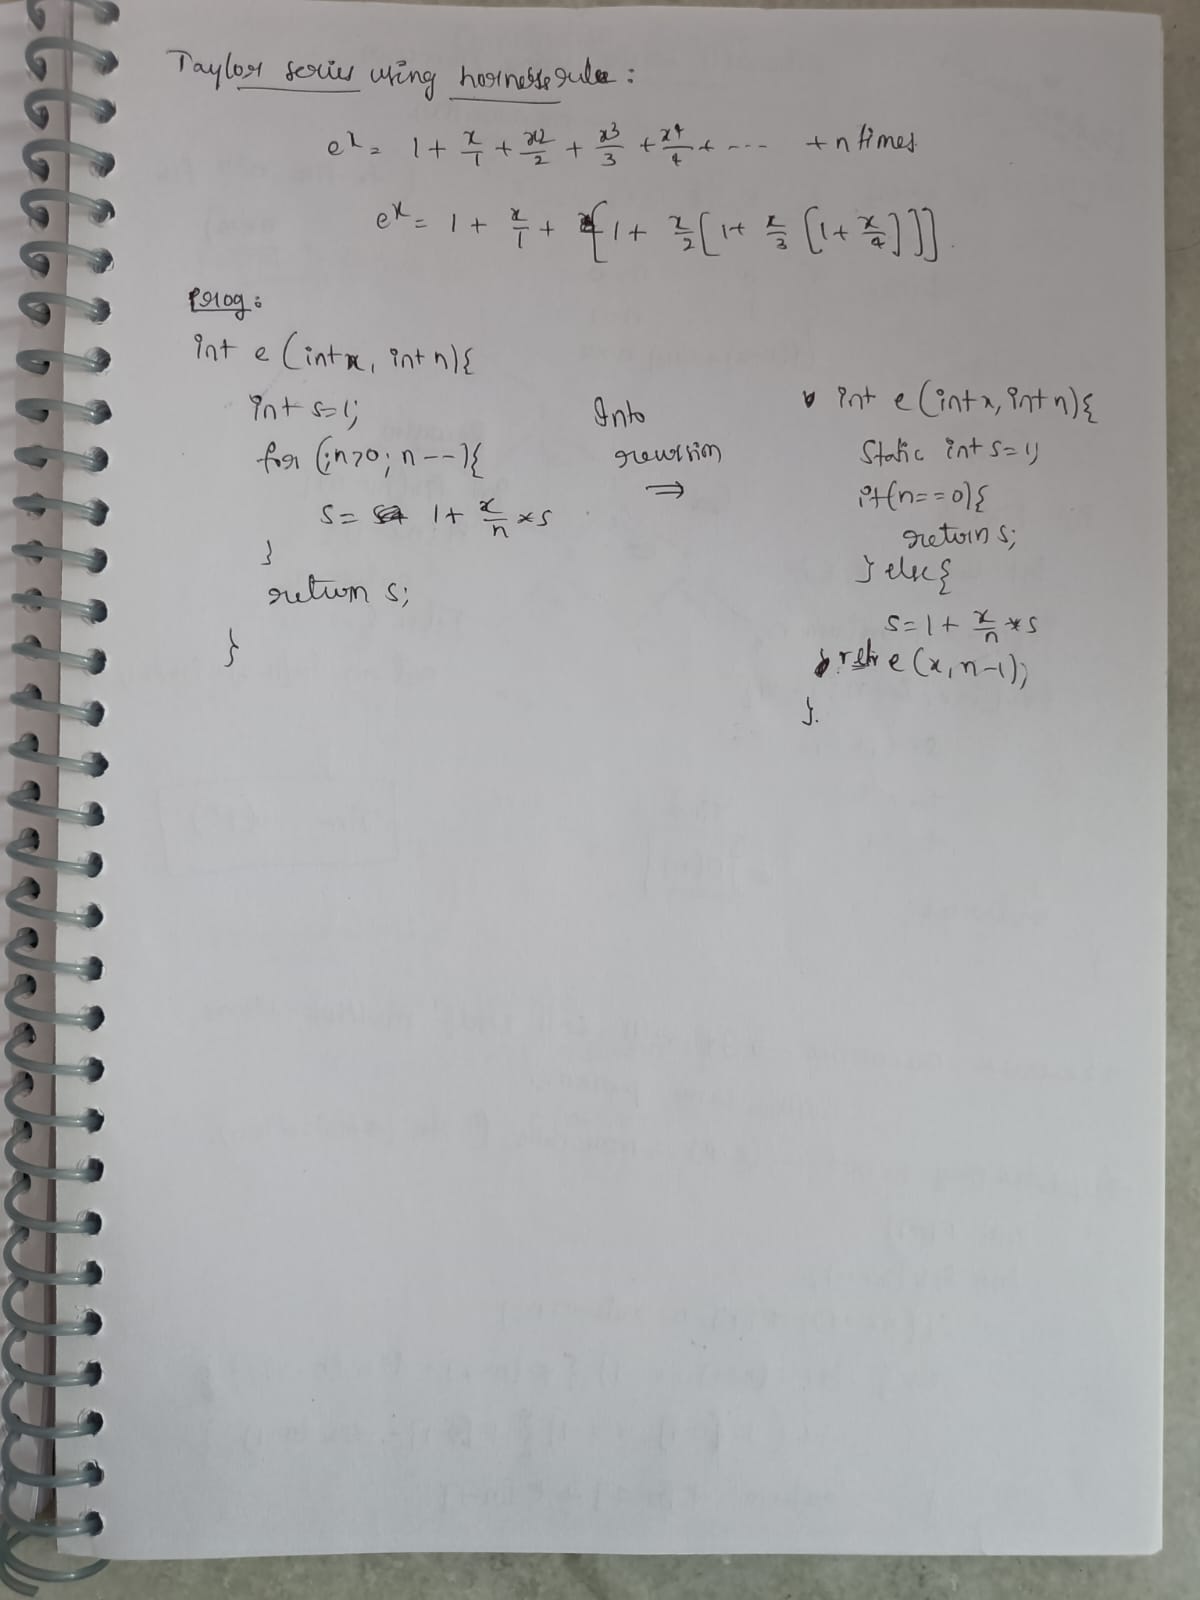 Taylor series using horness rule :
e^x = 1 + x/1 + x2/2 + x3/3 + x4/4 + --- + n times
e^x = 1 + x/1 + [1 + x/2 [1+ x/3 [1+ x/4]]]
Prog:
int e (int x, int n){
int s=1;
for (;n>0; n--){
s= 1+ x/n *s
}
return s;
}
Into
recursion
⇒
int e (int x, int n){
Static int s=1;
if(n==0){
return s;
} else{
s=1+ x/n *s
} e(x, n-1);
}.